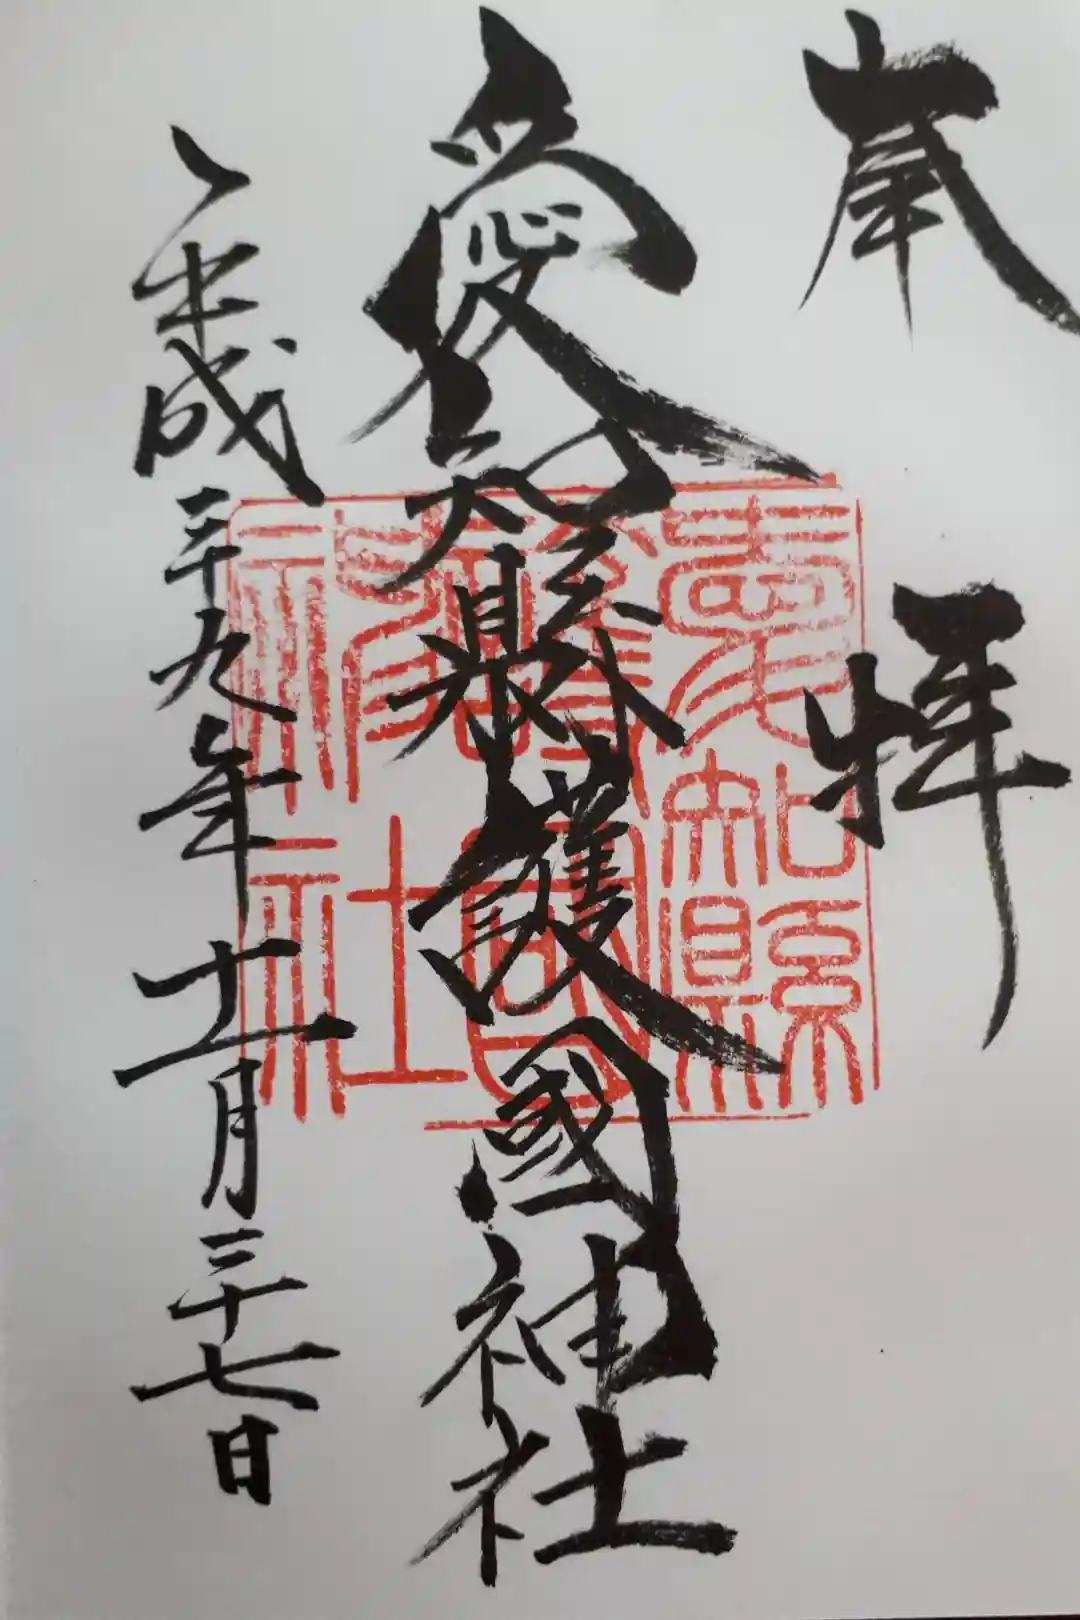 奉拝
愛知縣護國神社
平成二十九年十一月二十七日
愛知縣
護國
神社